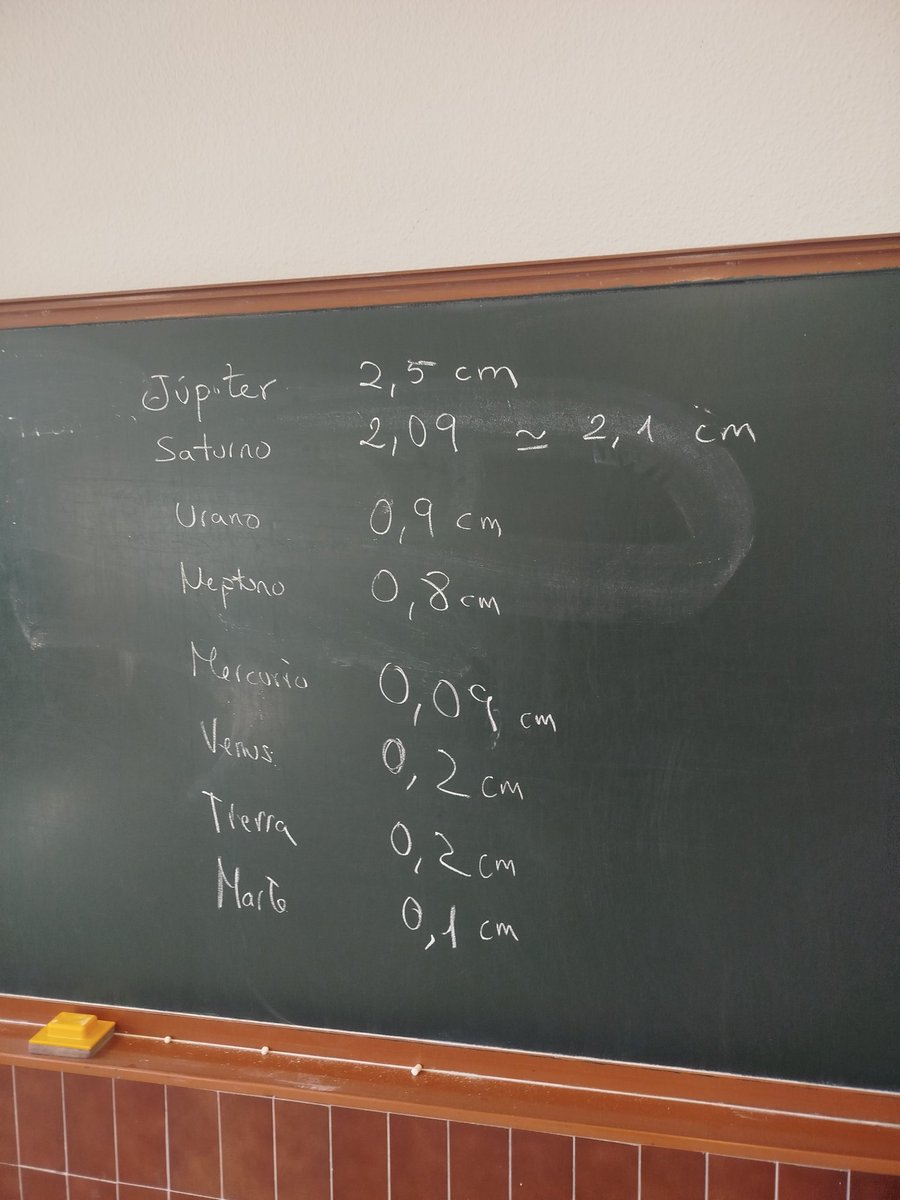 Júpiter 2,5 cm
Saturno 2,09 ≃ 2,1 cm
Urano 0,9 cm
Neptuno 0,8 cm
Mercurio 0,09 cm
Venus 0,2 cm
Tierra 0,2 cm
Marte 0,1 cm